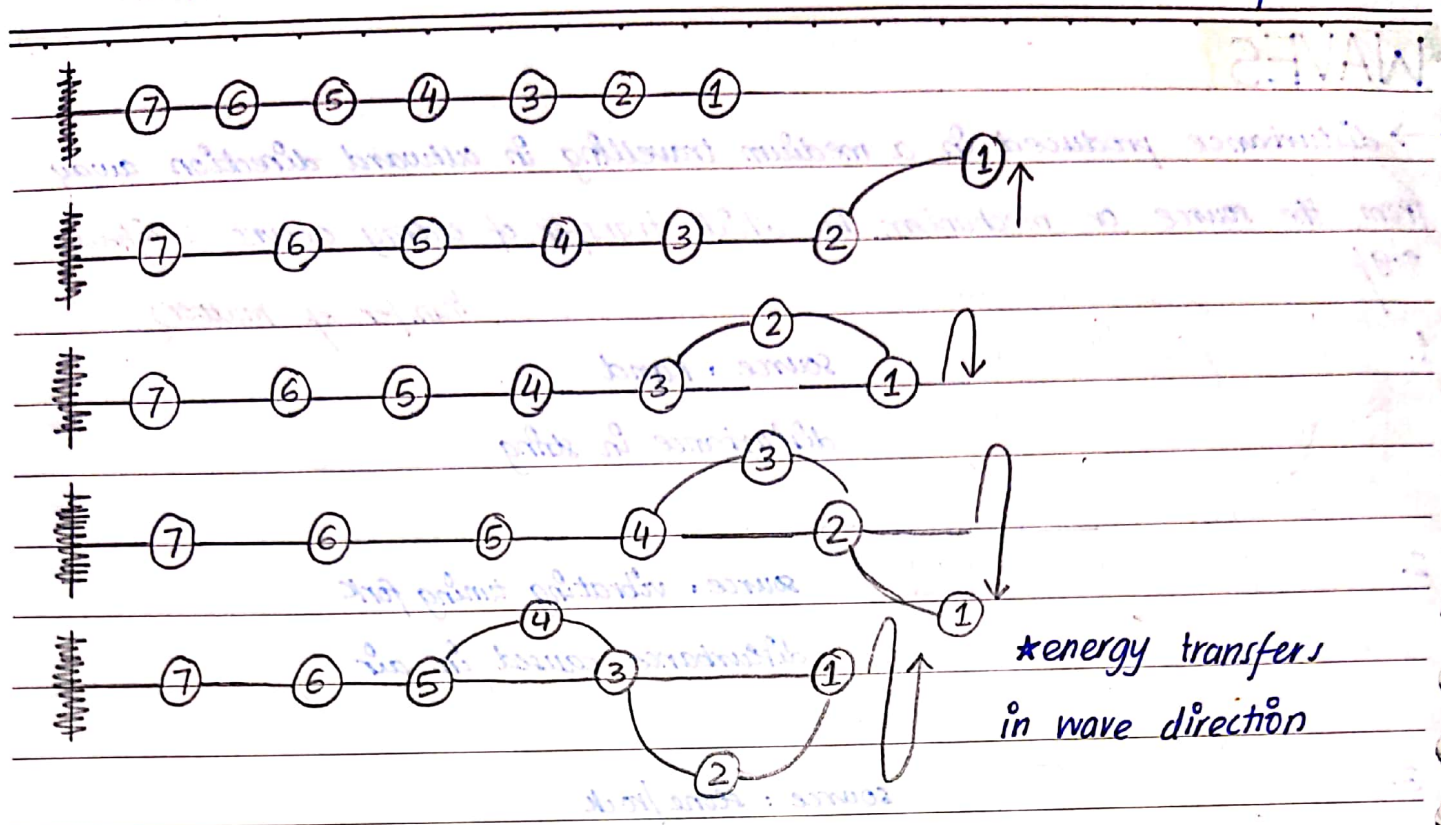 7 6 5 4 3 2 1
1
7 6 5 4 3 2
2
7 6 5 4 3 1
3
7 6 5 4 2
1
4
7 6 5 3 1
2
*energy transfers
in wave direction